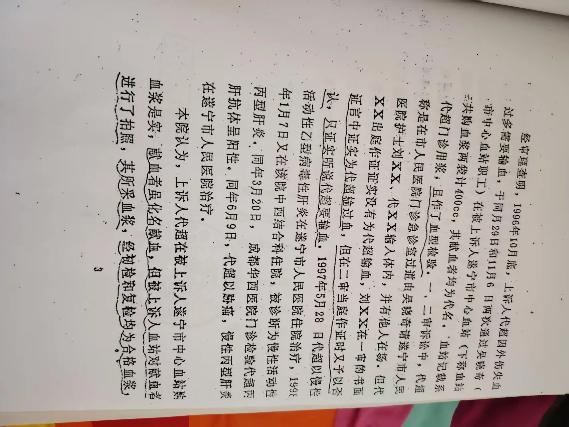 经审理查明，1996年10月底，上诉人代超因外伤失血
过多需要输血，于同月29日和11月6日两次通过吴晓奇（
市中心血站职工）在被上诉人遂宁市中心血站（下称血站
共购血浆两袋计400cc，其献血者均为代名。血站记载系
代超门诊用浆，且作了血型检验。一、二审诉讼中，代超
称是在市人民医院门诊急诊室过道由吴晓奇请遂宁市人民
医院护士刘XX、代XX输入体内，并有他人在场。但代
XX出庭作证证实没有为代超输血，刘XX在一审的书面
证言中证实为代超输过血，但在二审当庭作证时又予以否
认，只证实听说代超要输血。1997年5月28日代超以慢性
活动性乙型病毒性肝炎在遂宁市人民医院住院治疗，1998
年1月7日又在该院中西结合科住院，被诊断为慢性活动性
丙型肝炎。同年3月20日，成都华西医院门诊检验代超丙
肝抗体呈阳性。同年6月9日，代超以肺痛，慢性丙型肝炎
在遂宁市人民医院治疗。
本院认为，上诉人代超在被上诉人遂宁市中心血站购
血浆是实，献血者虽化名献血，但被上诉人血站对献血者
进行了拍照，其所采血浆，经初检和复检均为合格血浆，
3